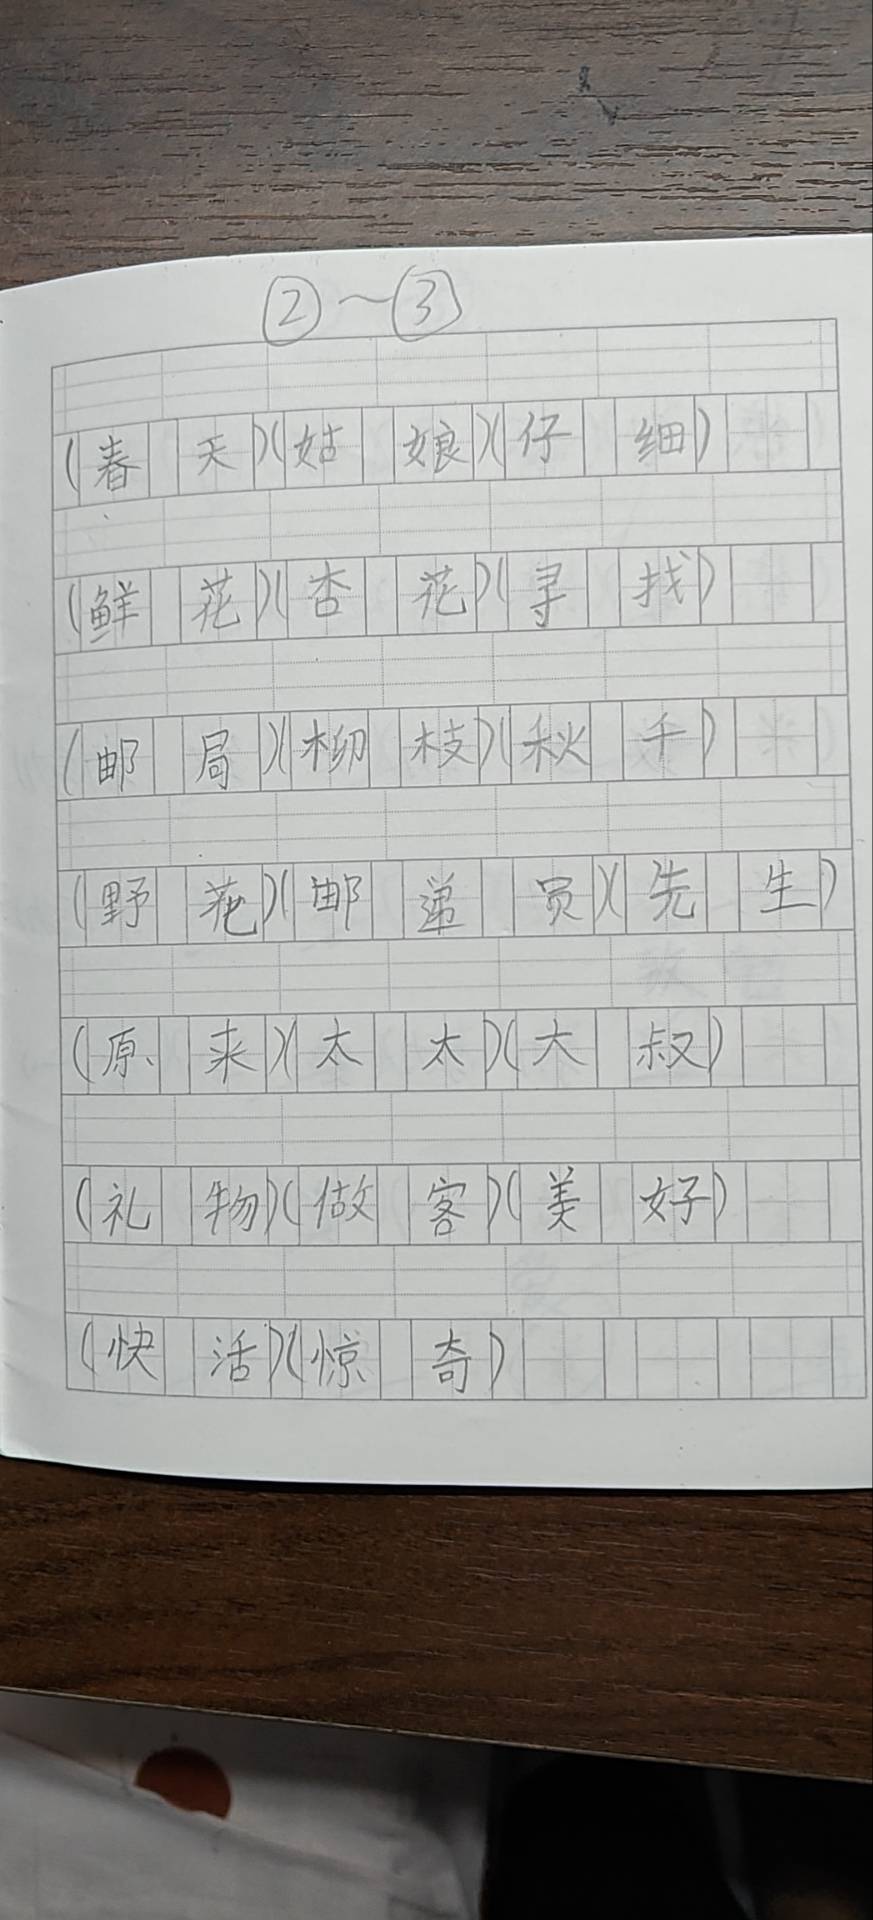 ②～③
(春天)(姑娘)(仔细)
(鲜花)(杏花)(寻找)
(邮局)(柳枝)(秋千)
(野花)(邮递员)(先生)
(原来)(太太)(大叔)
(礼物)(做客)(美好)
(快活)(惊奇)